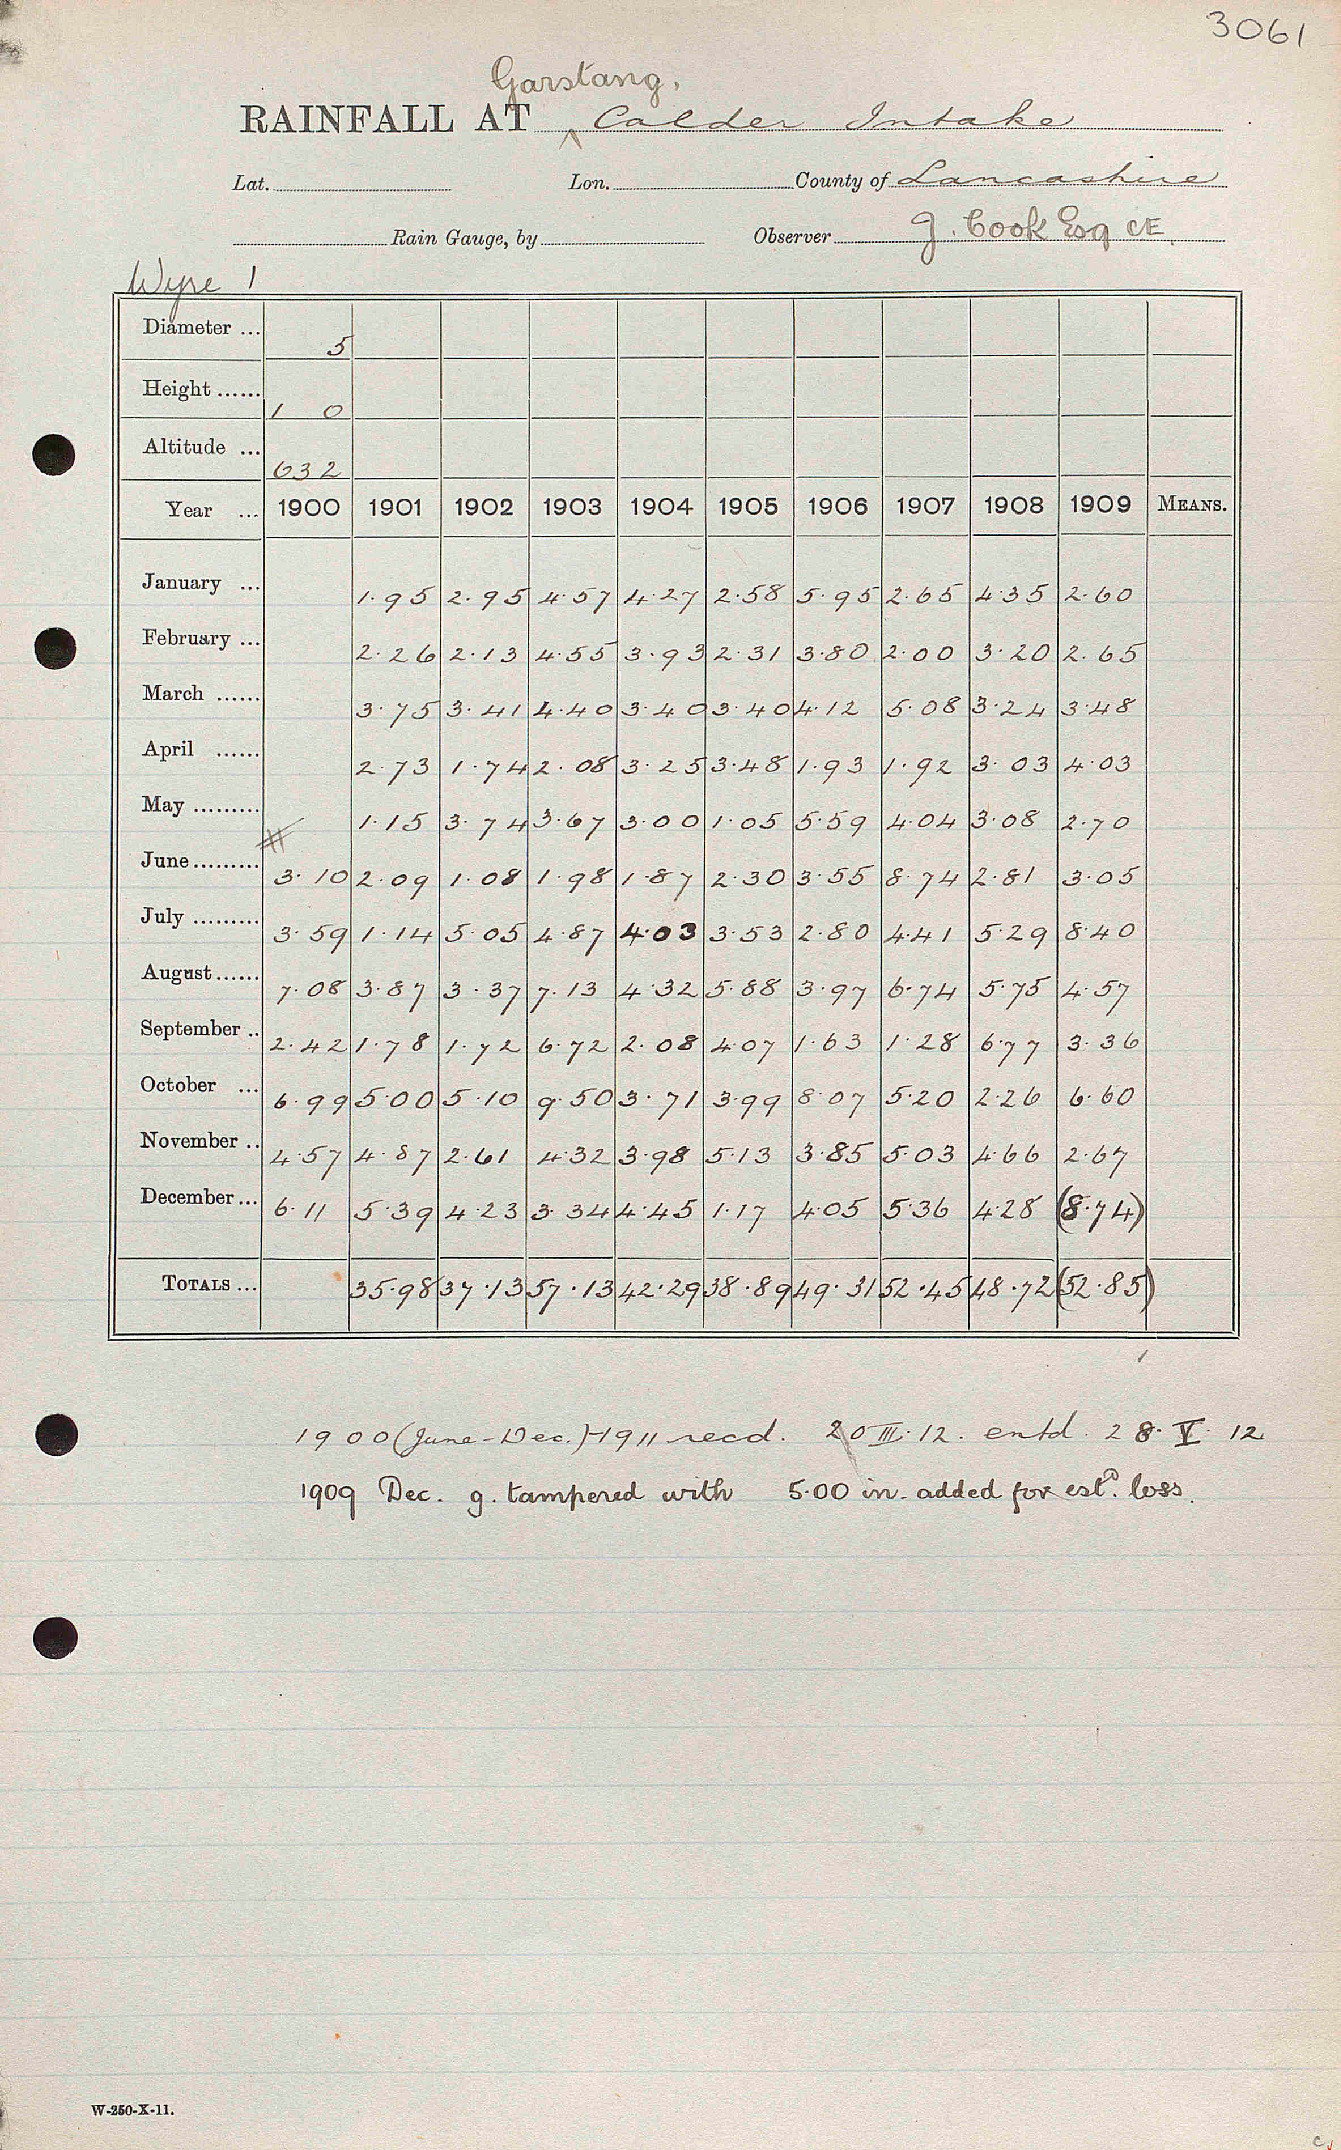 3061
Garstang,
RAINFALL AT Calder Intake
Lat. Lon. County of Lancashire
Rain Gauge, by Observer J. Cook Esq CE
Wyre 1
Diameter ... 5
Height ...... 1 0
Altitude ... 632
Year ... 1900 1901 1902 1903 1904 1905 1906 1907 1908 1909 MEANS.
January ... 1.95 2.95 4.57 4.27 2.58 5.95 2.65 4.35 2.60
February ... 2.26 2.13 4.55 3.93 2.31 3.80 2.00 3.20 2.65
March ...... 3.75 3.41 4.40 3.40 3.40 4.12 5.08 3.24 3.48
April ...... 2.73 1.74 2.08 3.25 3.48 1.93 1.92 3.03 4.03
May ......... 1.15 3.74 3.67 3.00 1.05 5.59 4.04 3.08 2.70
June ......... 3.10 2.09 1.08 1.98 1.87 2.30 3.55 8.74 2.81 3.05
July ......... 3.59 1.14 5.05 4.87 4.03 3.53 2.80 4.41 5.29 8.40
August ...... 7.08 3.87 3.37 7.13 4.32 5.88 3.97 6.74 5.75 4.57
September .. 2.42 1.78 1.72 6.72 2.08 4.07 1.63 1.28 6.77 3.36
October ... 6.99 5.00 5.10 9.50 3.71 3.99 8.07 5.20 2.26 6.60
November .. 4.57 4.87 2.61 4.32 3.98 5.13 3.85 5.03 4.66 2.67
December ... 6.11 5.39 4.23 3.34 4.45 1.17 4.05 5.36 4.28 (8.74)
TOTALS ... 35.98 37.13 57.13 42.29 38.89 49.31 52.45 48.72 (52.85)
1900 (June-Dec.)-1911 recd. 20 III.12. entd. 28.V.12
1909 Dec. g. tampered with 5.00 in. added for estd. loss.
W-250-X-11.